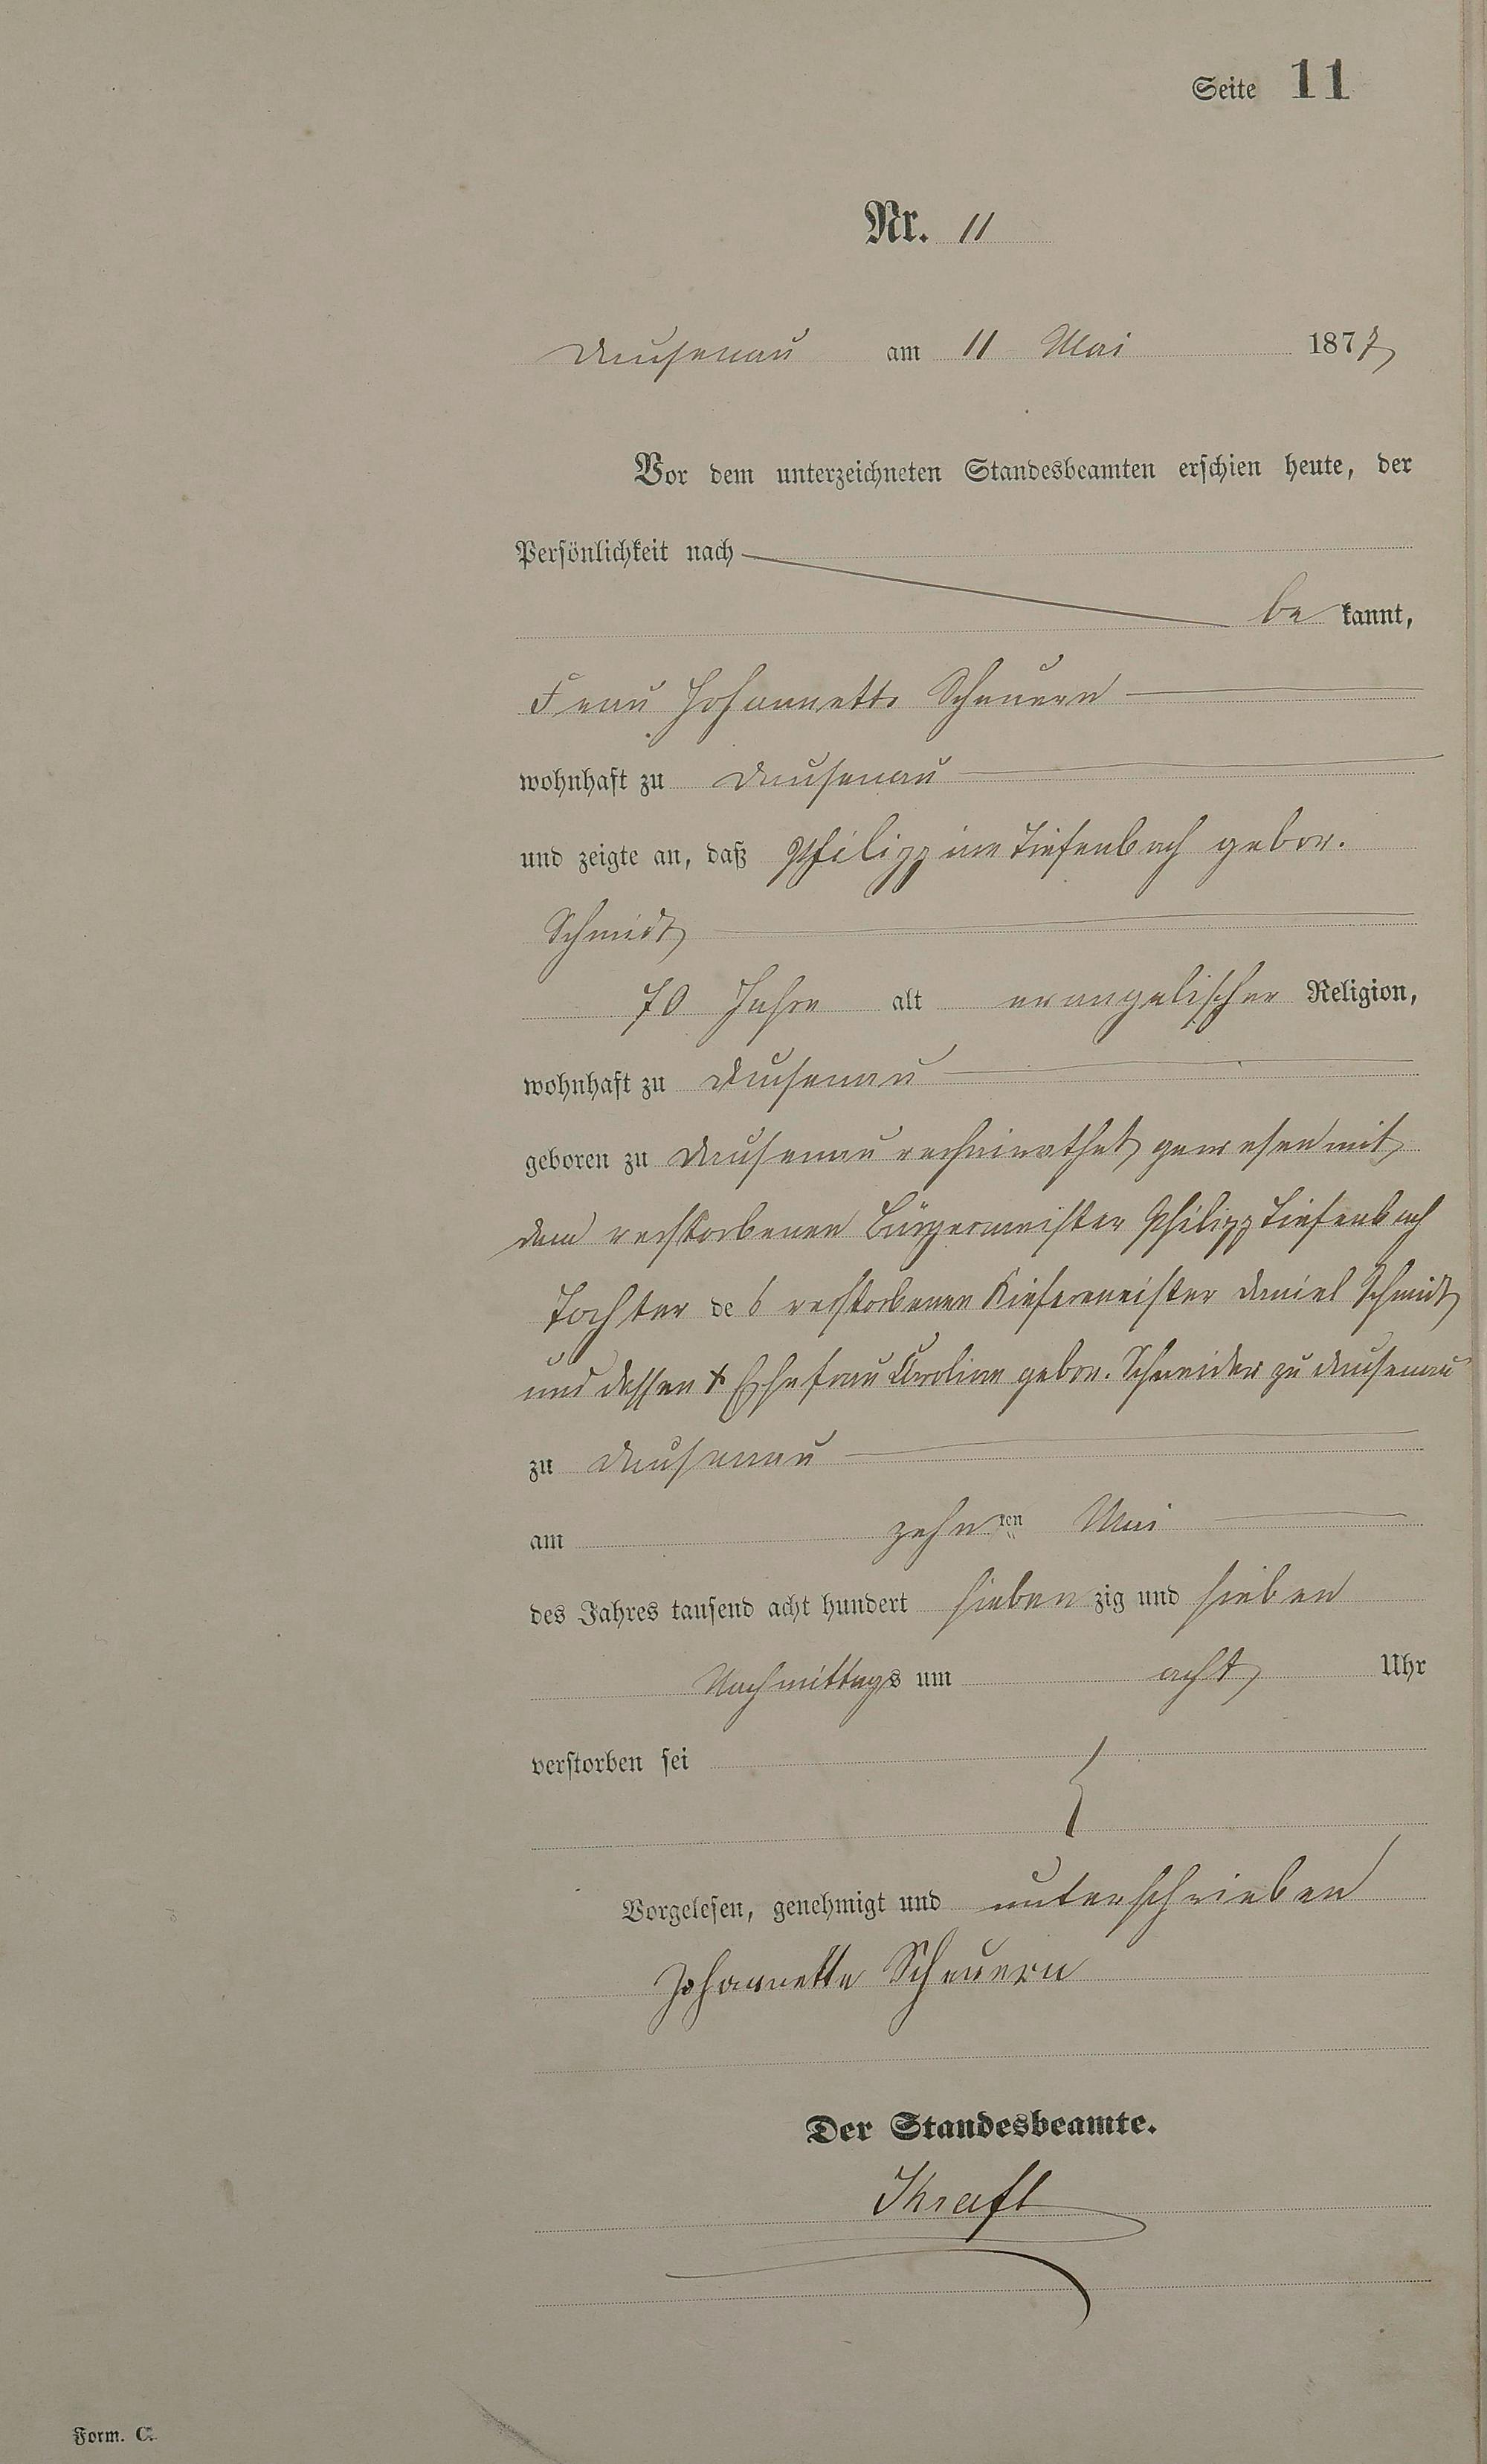 Seite 11
Nr. 11
Dausenau am 11 Mai 1877
Vor dem unterzeichneten Standesbeamten erschien heute, der
Persönlichkeit nach
be kannt,
Frau Johannette Scheuern
wohnhaft zu Dausenau
und zeigte an, daß Philippine Tiefenbach gebor.
Schmidt
70 Jahre alt evangelischer Religion,
wohnhaft zu Dausenau
geboren zu Dausenau verheirathet gewesen mit
dem verstorbenen Bürgermeister Philipp Tiefenbach
Tochter des verstorbenen Kiefermeister Daniel Schmidt
und dessen + Ehefrau Caroline gebor. Schneider zu Dausenau
zu Dausenau
am zehnten Mai
des Jahres tausend acht hundert siebenzig und sieben
Nachmittags um acht Uhr
verstorben sei
Vorgelesen, genehmigt und unterschrieben
Johannette Scheuern
Der Standesbeamte.
Kraft
Form. C.